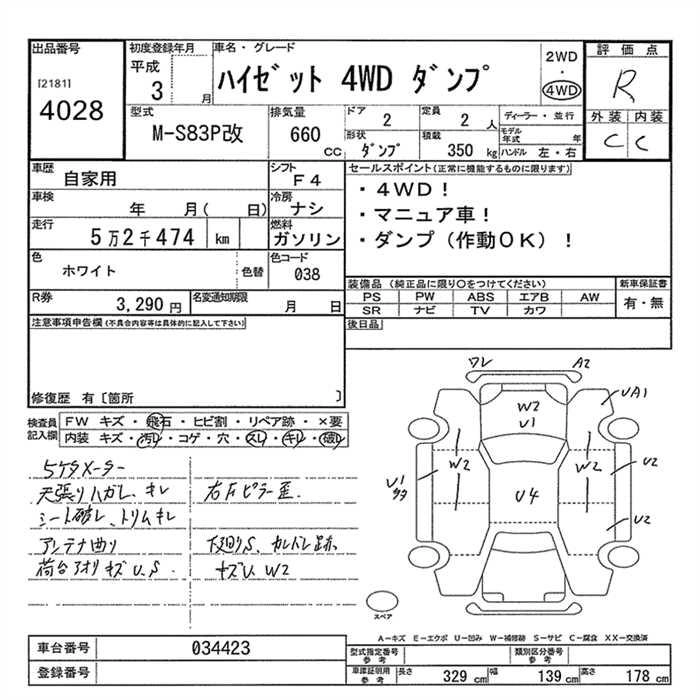 出品番号
[2181]
4028
初度登録年月
平成
3 月
車名・グレード
ハイゼット 4WD ダンプ
2WD
・
4WD
評価点
R
外装 内装
C C
型式
M-S83P改
排気量
660
CC
ドア
2
定員
2 人
形状
ダンプ
積載
350 kg
ディーラー・並行
モデル年式 年
ハンドル 左・右
車歴
自家用
シフト
F4
車検
年 月( 日)
冷房
ナシ
走行
5万2千474 km
燃料
ガソリン
色
ホワイト
色替
色コード
038
R券
3,290 円
名変通知期限
月 日
セールスポイント(正常に機能するものに限ります)
・4WD!
・マニュア車!
・ダンプ(作動OK)!
装備品(純正品に限り○をつけてください)
PS PW ABS エアB AW
SR ナビ TV カワ
新車保証書
有・無
後日品
注意事項申告欄(不具合内容等は具体的に記入して下さい)
修復歴 有[箇所 ]
検査員
記入欄
FW キズ・飛石・ヒビ割・リペア跡・×要
内装 キズ・汚レ・コゲ・穴・スレ・キレ・破レ
5ケタメーター
天張りハガレ、キレ
右Fピラー歪
シート破レ、トリムキレ
アンテナ曲り
下廻りS、カレドレ跡
荷台アオリキズU.S
キズU W2
ワレ
A2
UA1
W2
U1
W2
W2
U1
U2
U4
U2
スペア
A－キズ E－エクボ U－凹み W－補修跡 S－サビ C－腐食 XX－交換済
車台番号
034423
登録番号
型式指定番号
参考
類別区分番号
参考
車庫証明用
参考
長さ
329 cm
幅
139 cm
高さ
178 cm